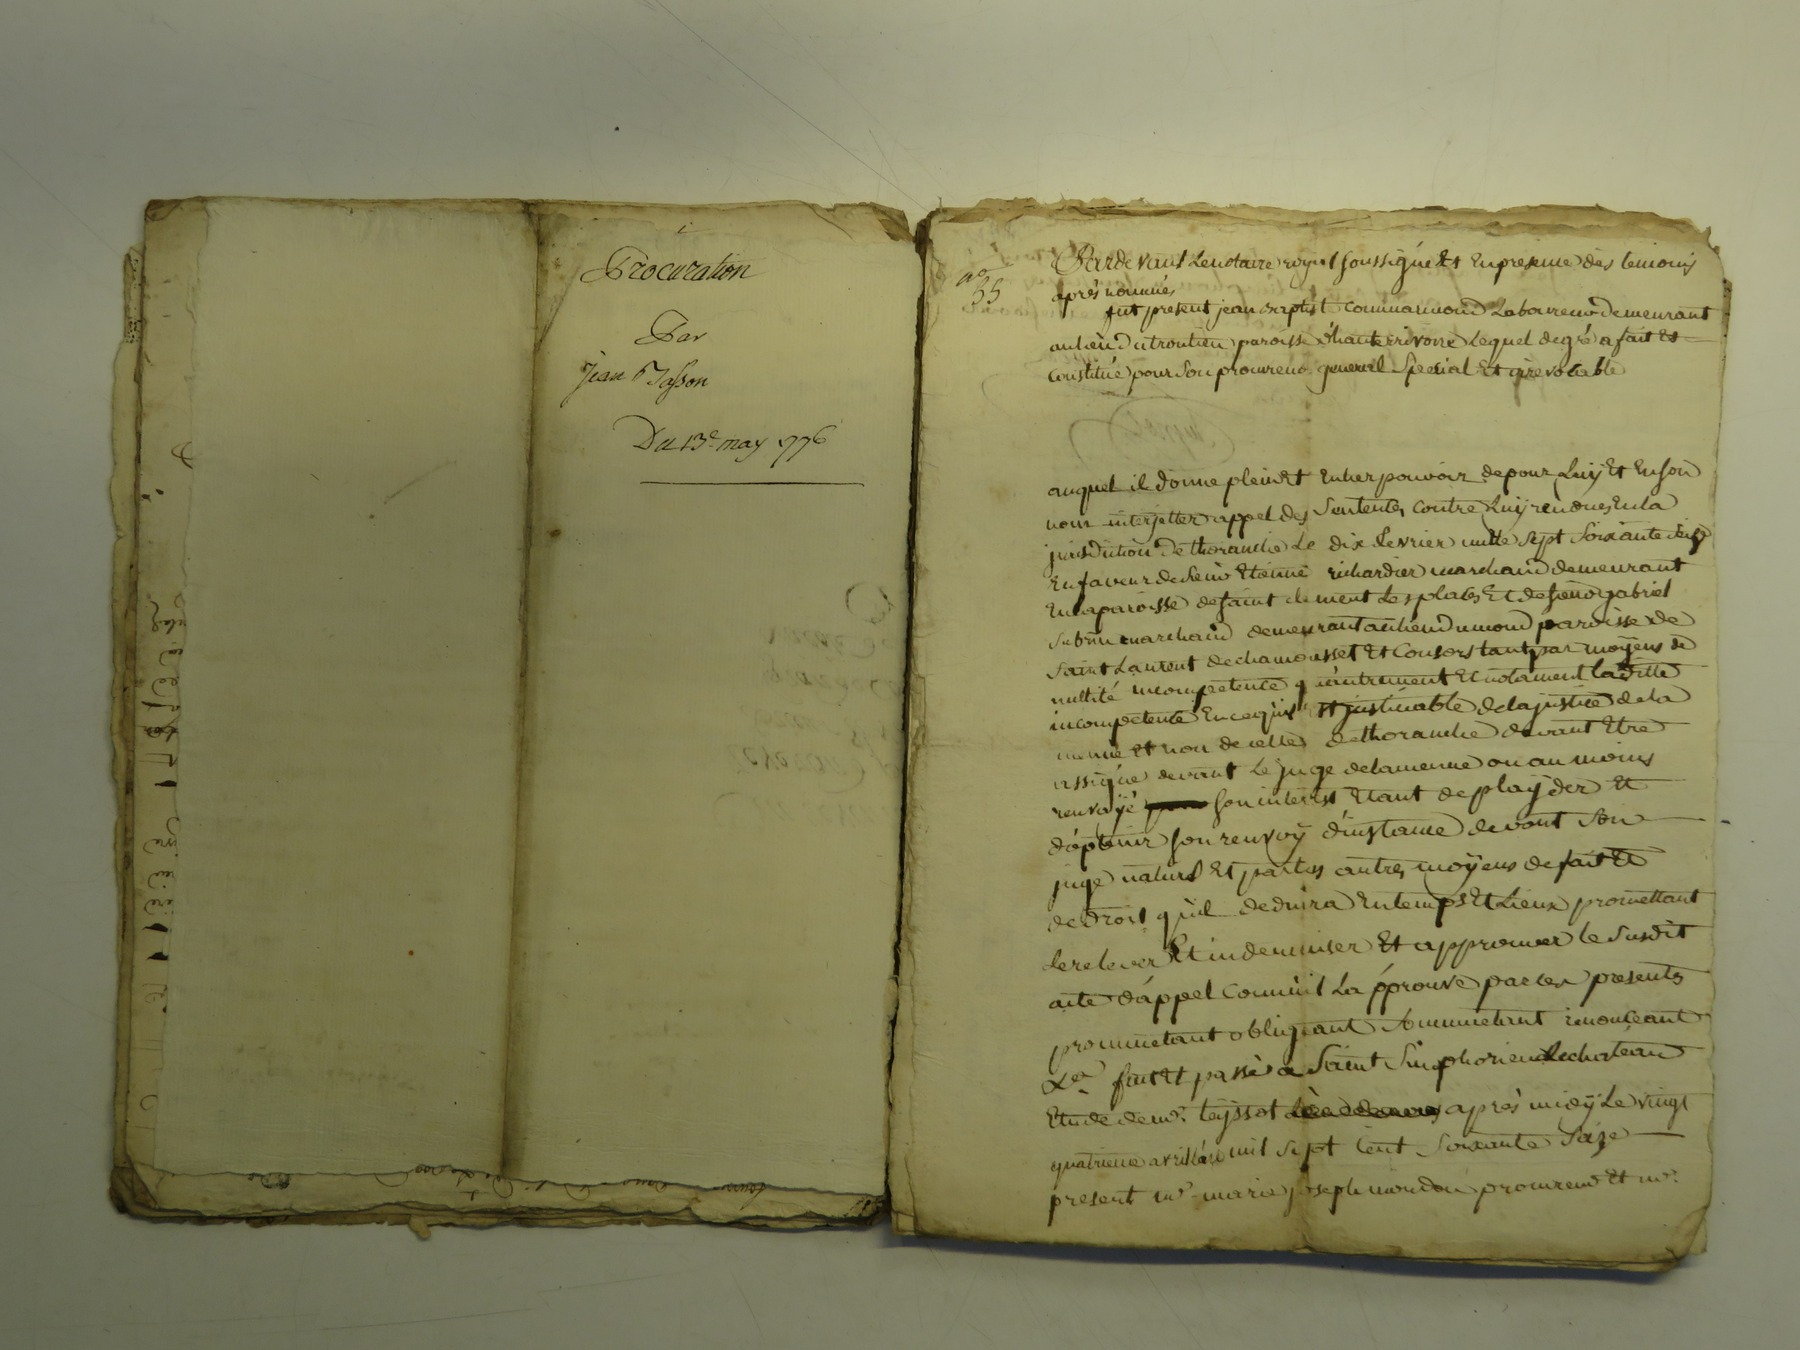 Procuration
Par
Jean Tasson
Du 13e may 1776
no
55
Pardevant Lenotaire royal soussigné Et Enpresence des temoins
après nommés
fut present jean baptist commarmond Laboureur demeurant
aulieu dutroutieu paroisse d'hauterivoire Lequel degré a fait Et
Constitué pour Son procureur general Special Et irrevocable
auquel il donne plein Et Entier pouvoir de pour Luy Et En son
nom interjetter appel des Sentences Contre Luy rendues En la
jurisdiction de thoranche Le dix fevrier mille Sept Soixante Seize
En faveur de Sieur Etienne richardier marchand demeurant
En la paroisse de saint clement Les places Et de Sieur gabriel
marchand demeurant aulieu paroisse de
Saint Laurent de chamousset Et Consors tant par moyens de
nullité incompetence qu'autrement Et notament La ditte
incompetence En ce qu'il Et justiciable de la justice de la
menue Et non de celle de thoranche devant Etre
assigné devant Le juge de la menue ou au moins
renvoyé Son interest Etant de playder Et
d'optenir son renvoy d'instance devant Son
juge naturel Et par Les autres moyens de fait Et
de Droit qu'il deduira En temps Et Lieux promettant
Le relever Et indemniser Et approuver le Susdit
acte d'appel Comme il L'approuve par ces presentes
promettant obligeant Soummettant renonceant
&a fait Et passé a Saint Simphorien Lechateau
Etude de me teyssot après midy Le vingt
quatrieme avril mil Sept Cent Soixante Seize
present me marie joseph procureur Et me